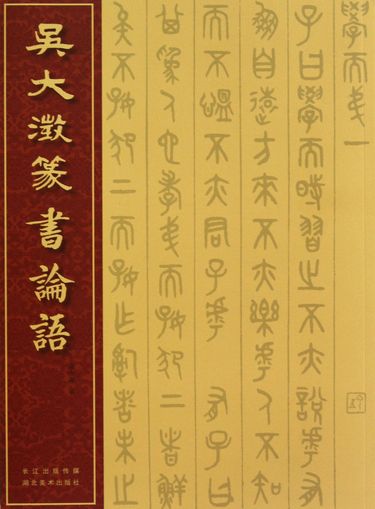 吳大澂篆書論語
學而弟一
子曰學而時習之不亦說乎有
朋自遠方來不亦樂乎人不知
而不慍不亦君子乎 有子曰
其為人也孝弟而好犯上者鮮
矣不好犯上而好作亂者未之
长江出版传媒
湖北美术出版社